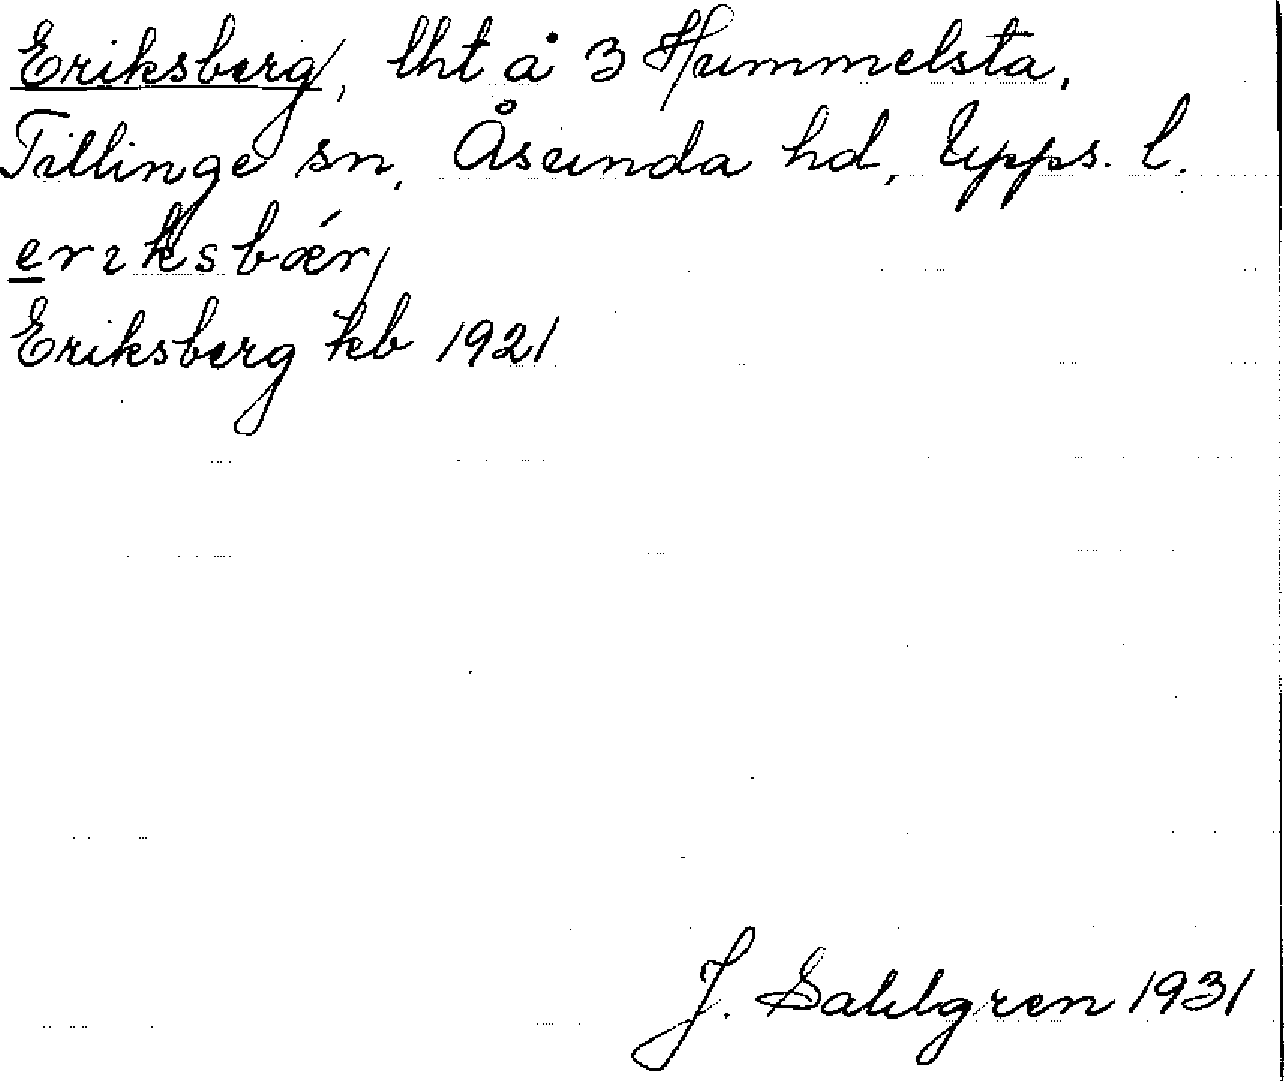 Eriksberg, lht å 3 Hummelsta,
Tillinge sn, Åsunda hd, Upps. l.
erıksbær,
Eriksberg kb 1921
J. Sahlgren 1931